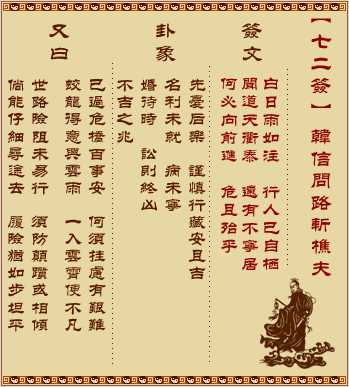 【七二簽】 韓信問路斬樵夫
簽文
白日雨如注 行人已自栖
聞道天衢泰 還有不寧居
何必向前進 危且殆乎
卦象
先憂后樂 謹慎行藏安且吉
名利未就 病未寧
婚待時 訟則終凶
不吉之兆
又曰
已過危橋百事安 何須挂慮有艱難
蛟龍得意興雲雨 一入雲霄便不凡
世路險阻未易行 須防顛躓或相傾
倘能仔細尋途去 履險猶如步坦平